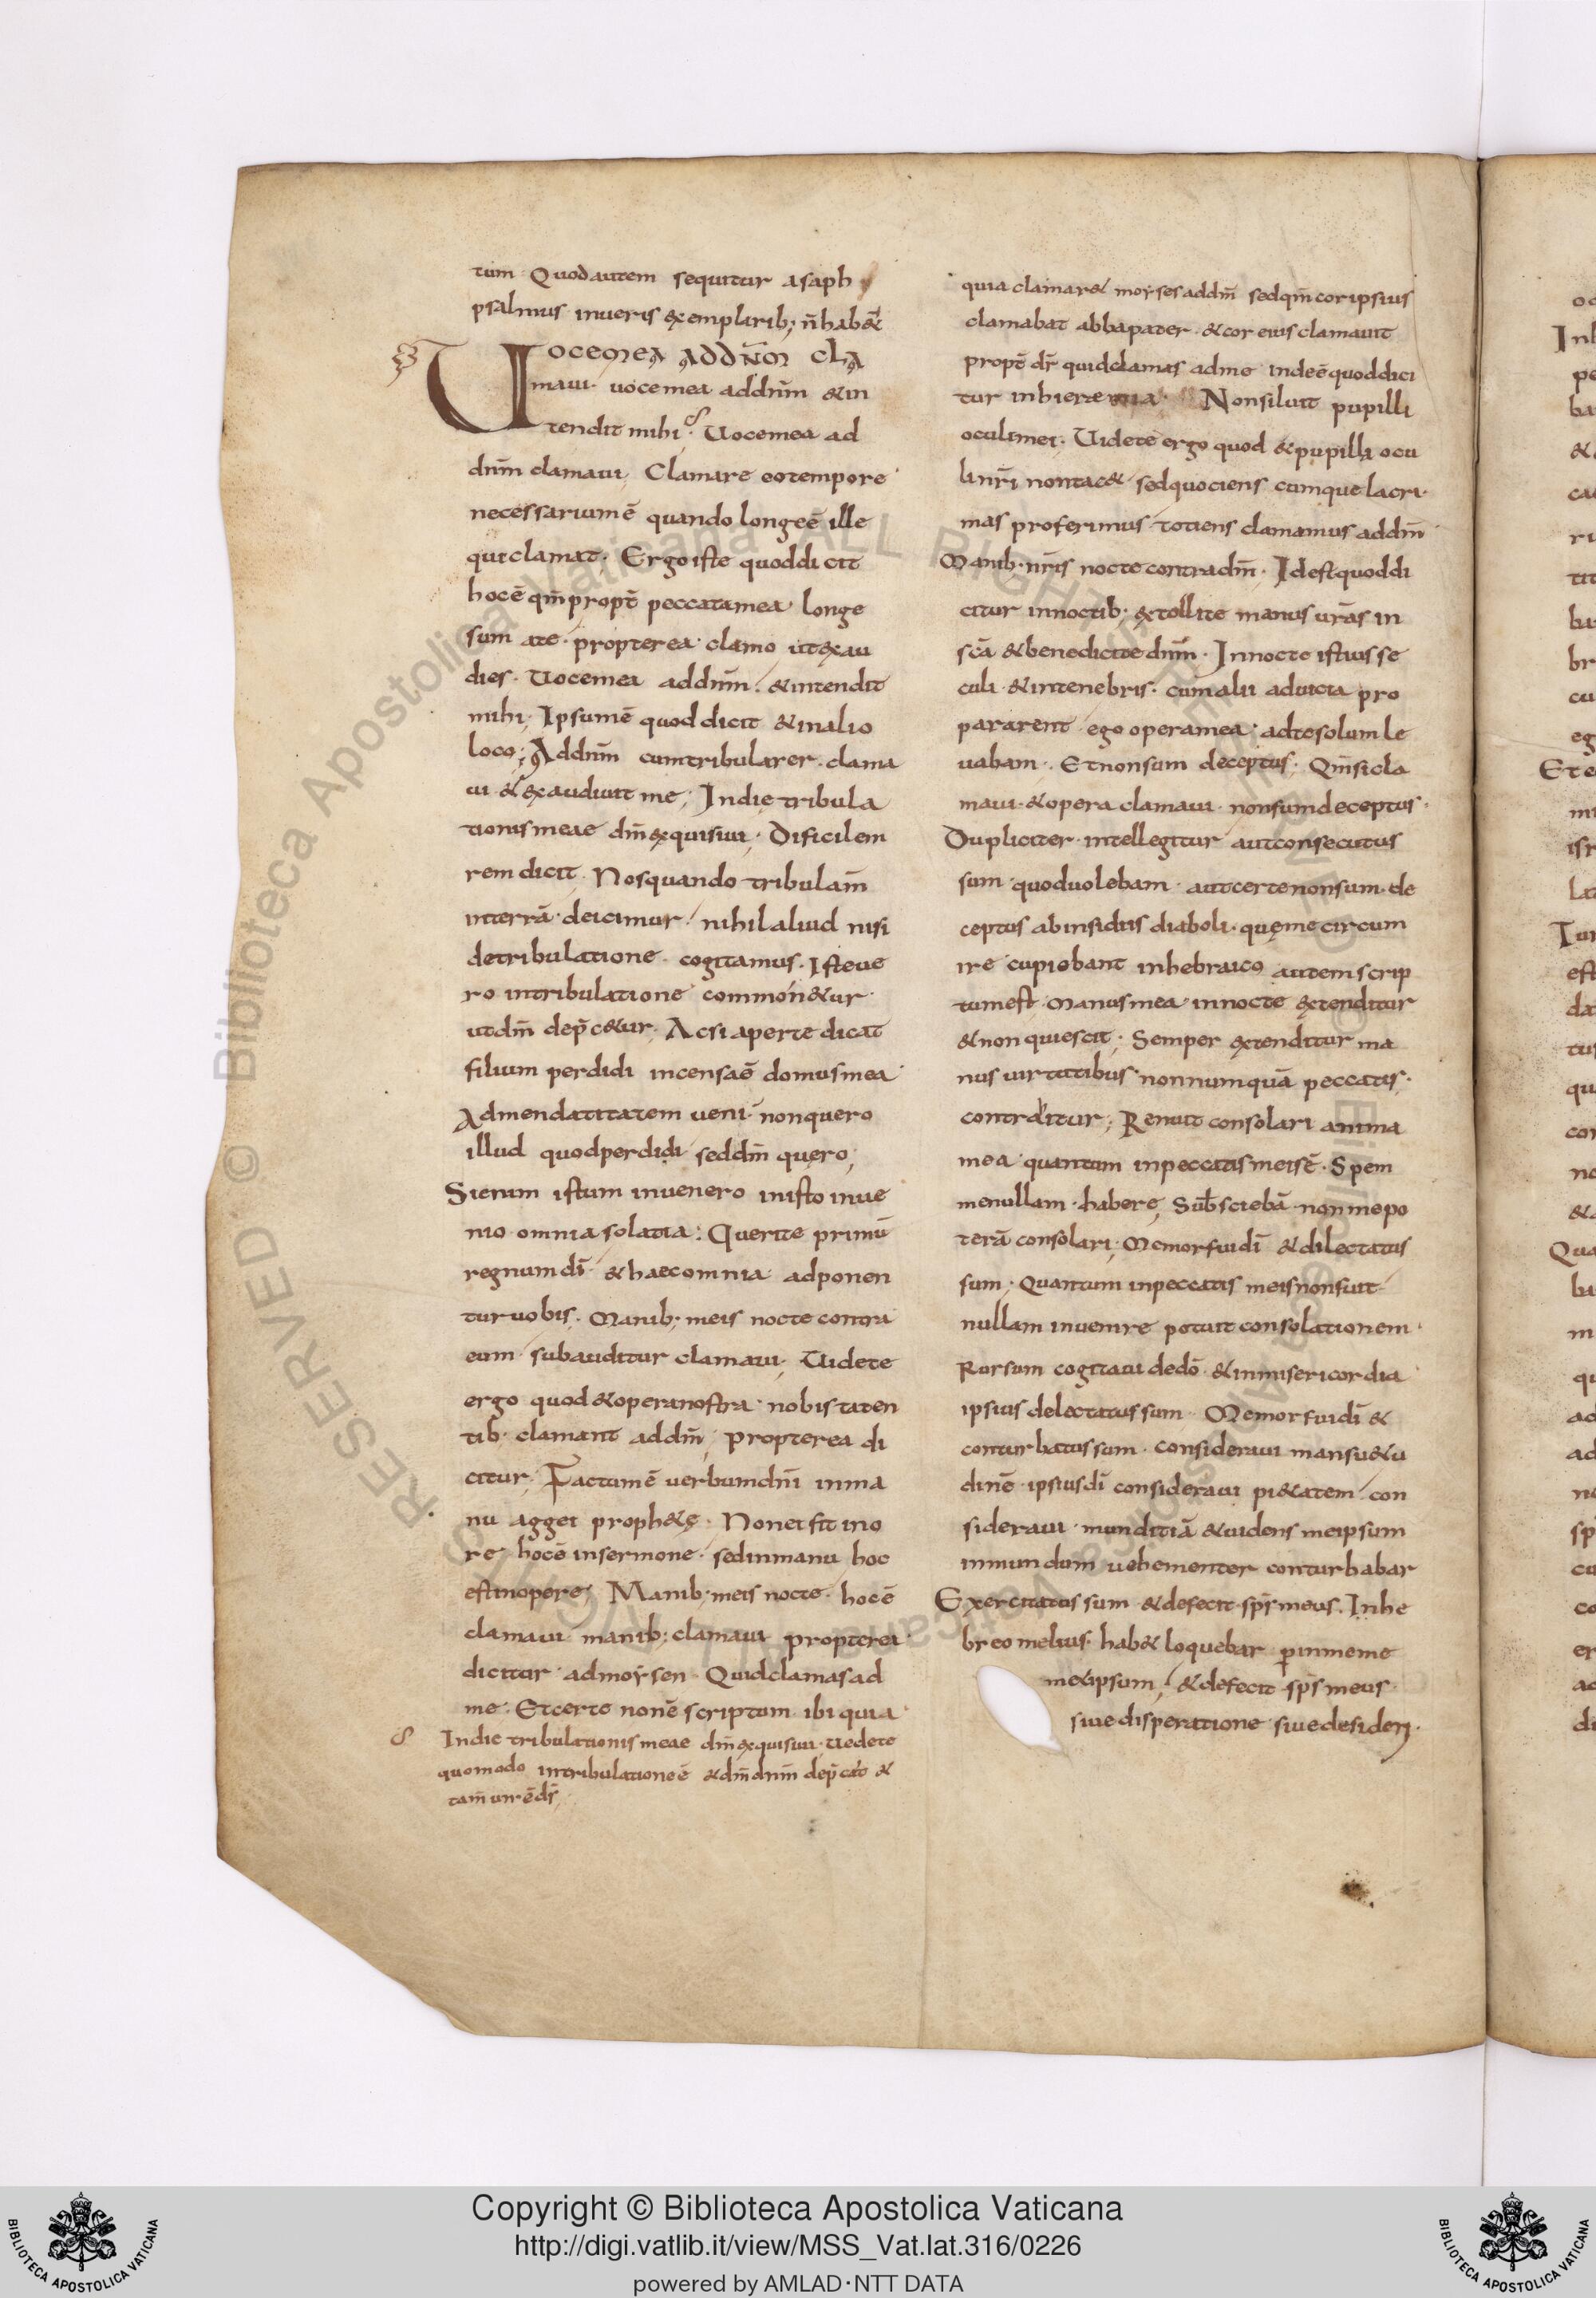 tum Quod autem sequitur asaph
psalmus inueris exemplarib; n̄ habet̄
UOCEMEA ADDN̄M CLA
maui· uoce mea addn̄m &in
tendit mihi· Uocemea ad
dn̄m clamaui, Clamare eotempore
necessariumē quando longeē ille
qui clamat· Ergo iste quoddicit
hocē qm̄ propt̄ peccatamea· longe
sum ate· propterea· clamo utexau
dies· Uocemea addn̄m· &intendit
mihi; Ipsumē quod dicit &inalio
loco; Addn̄m cumtribularer· clama
ui &exaudiuit me; Indie tribula
tionis meae dm̄ exquisiui· Dificilem
rem dicit Nosquando tribulam̄
interrā· deicimur/ nihil aliud nisi
detribulatione· cogitamus· Isteue
ro intribulatione common&ur·
utdm̄ dep̄c&ur· Acsi aperte dicat
filium perdidi incensaē domusmea
Admendatitatem ueni· nonquero
illud quodperdidi seddm̄ quęro;
Sienim istum inuenero inisto inue
nio omnia solatia: Querite primū
regnumdī· &haecomnia adponen
turuobis· Manib; meis nocte contra
eum· subauditur clamaui, Uidete
ergo quod &operanostra· nobis taten
tib· clamant addm̄; propterea di
citur; Factumē uerbumdn̄i inma
nu aggei proph&ę· Nonei fit ino
re hocē insermone· sedinmanu hoc
estinopere, Manib; meis nocte· hocē
clamaui manib; clamaui propterea
dicitur· admoysen· Quidclamasad
me· Etcerte nonē scriptum ibi quia
Indie tribulationis meae dm̄ exquisiui· uedete
quomodo intribulationeē &dm̄ dn̄m dep̄cat̄ &
tam̄ unrēds̄
quia clamar& moyses addm̄ sedqm̄ cor ipsius
clamabat abbapater· &cor eius clamauit
propt̄ dr̄ quidclamas adme indeē quoddici
tur inhieremia· Nonsiluit pupilli
oculimei· Uidete ergo quod &pupillą ocu
li nr̄i nontac& sedquociens cumque lacri·
mas proferimus· totiens clamamus addm̄
Manib· nr̄is nocte contradm̄· Idest quoddi
citur innoctib; extollite manus ur̄as in
sc̄a &benedicite dn̄m· Innocte istius se
culi &intenebris· cumalii aduicia pro
pararent ego operamea· adtesolumle
uabam· Etnonsum deceptus; Qm̄ sicla
maui· &opera clamaui· nonsumdeceptus·
Dupliciter· intellegitur autconsecutus
sum quoduolebam· autcertenonsum· de
ceptus abinsidiis diaboli· quęme circum
ire cupiebant inhebraico autemscrip
tumest· Manusmea· innocte extenditur
&non quiescit; Semper extenditur ma
nus uirtutibus· nonnumquā peccatis·
contrditur; Renuit consolari anima
mea quantum inpeccatis meisē· Spem
menullam· habere, Sub̄ sciebā· nonmepo
terā consolari· Memorfuidī &dilectatus
sum; Quantum inpeccatis meisnonfuit
nullam inuenire potuit consolationem·
Rursum cogitaui dedō &inmisericordia
ipsius delectatus sum Memorfuidī &
conturbatus sum· consideraui mansu&u
dinē· ipsiusdī consideraui pi&atem· con
sideraui· munditiā &uidens meipsum
inmundum uehementer conturbabar
Exercitatus sum &defecit sps̄ meus· Inhe
breo melius· hab& loquebar p̄ inmeme
metipsum, &defecit sps̄ meus·
siue disperatione siuedesiderį·
Copyright © Biblioteca Apostolica Vaticana
http://digi.vatlib.it/view/MSS_Vat.lat.316/0226
powered by AMLAD·NTT DATA
BIBLIOTECA APOSTOLICA VATICANA
BIBLIOTECA APOSTOLICA VATICANA